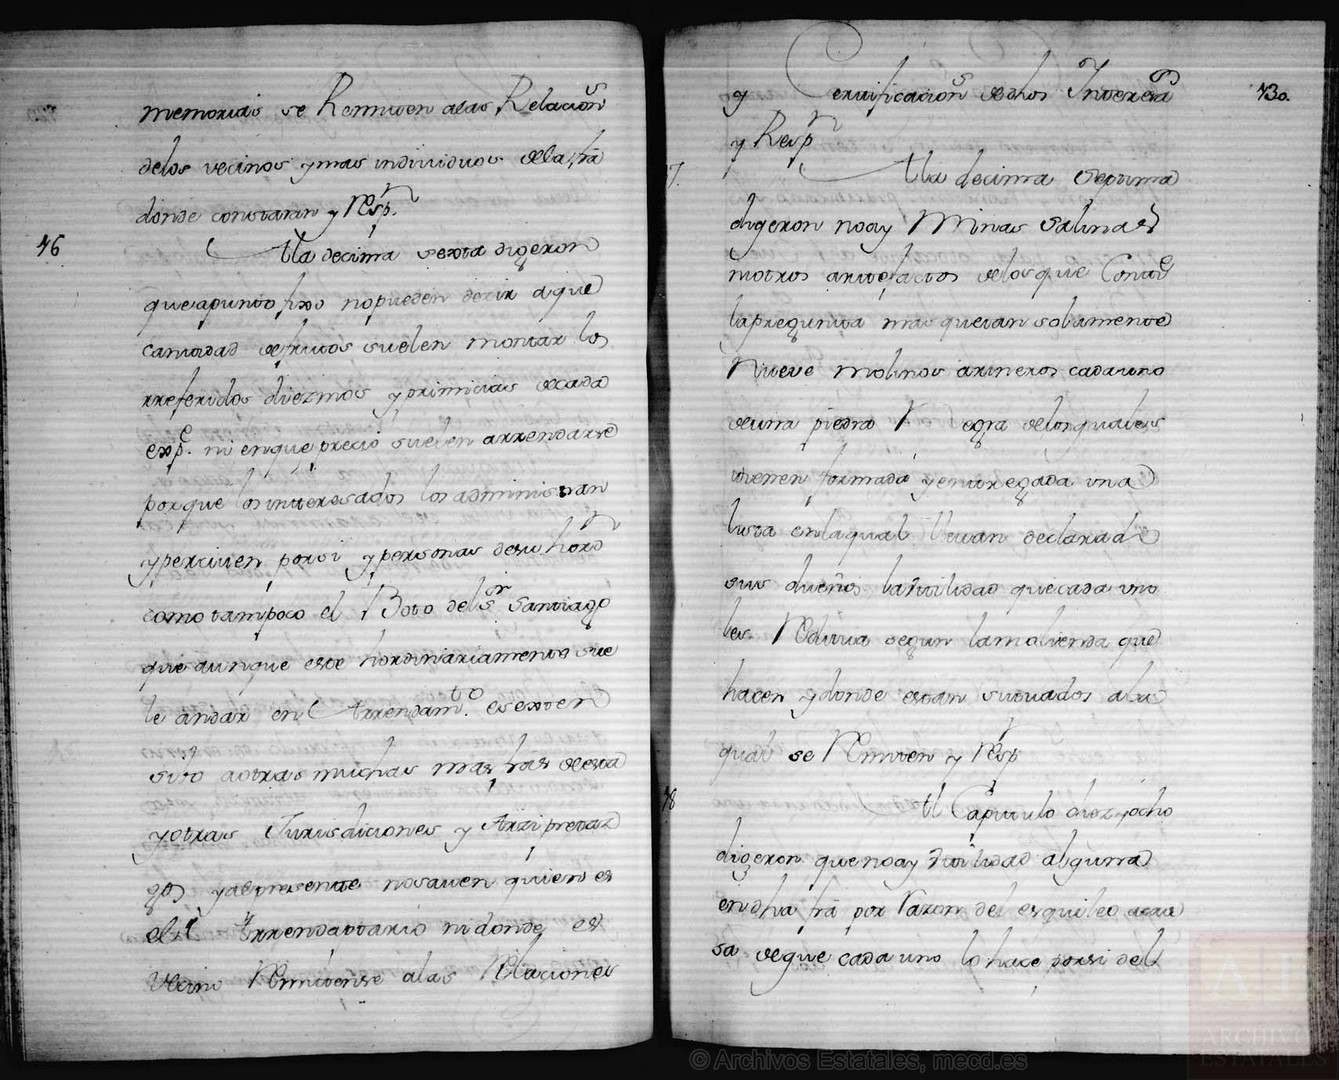 memorias se Remiten alas Relacions
delos vecinos y mas individuos dela fra
donde constaran y Resp.n
16
Ala decima sexta digeron
que apunto fixo nopueden decir aque
cantidad defrutos suelen montar los
rreferidos diezmos y primicias decada
exp.e ni enque precio suelen arrendarse
porque los interesados los administran
y perciven porsi y personas desu horn
como tampoco el Boto del Sr Santiago
que aunque este hordinariamente sue
le andar en Arrendam.to es exten
sivo aotras muchas mas fras de esta
y otras Jurisdiciones y Arzipretaz
gos y alpresente nosaven quien es
el Arrendaptario ni donde es
Vecino Remitense alas Relaciones
130.
y Certificacions de dhos Interesa
y Resp.n
17.
Ala decima septima
digeron no ay Minas Salinas
niotros artefactos delosque Conte
lapregunta mas quetan solamente
Nueve molinos arineros cadauno
deuna piedra Negra delosquales
tienen formada y entregada una
lista enlaqual llevan declarado
sus dueños lautilidad quecada uno
les Reditua segun lamolienda que
hacen y donde estan situados ala
qual se Remiten y Resp
18
Al Capitulo diez y ocho
digeron que no ay utilidad alguna
en dha fra por razon del esquileo acau
sa deque cada uno lo hace porsi del
© Archivos Estatales, mecd.es
ARCHIVOS
ESTATALES